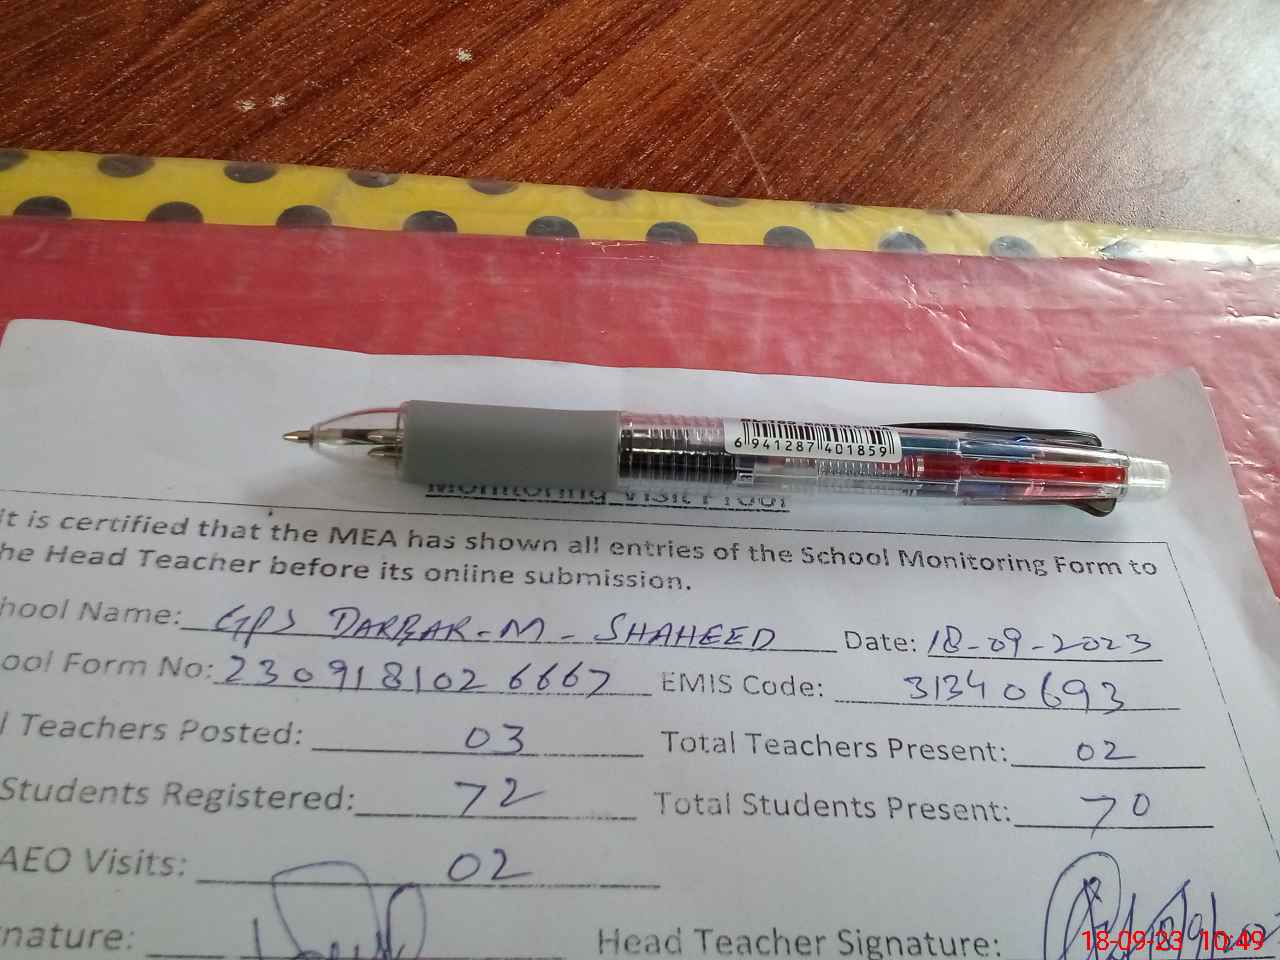 6 941287 401859
Monitoring Visit Proof
it is certified that the MEA has shown all entries of the School Monitoring Form to
he Head Teacher before its online submission.
hool Name: GPS DARBAR-M-SHAHEED Date: 18-09-2023
ool Form No: 2309181026667 EMIS Code: 31340693
l Teachers Posted: 03 Total Teachers Present: 02
Students Registered: 72 Total Students Present: 70
AEO Visits: 02
nature: Head Teacher Signature:
18-09-23 10:49